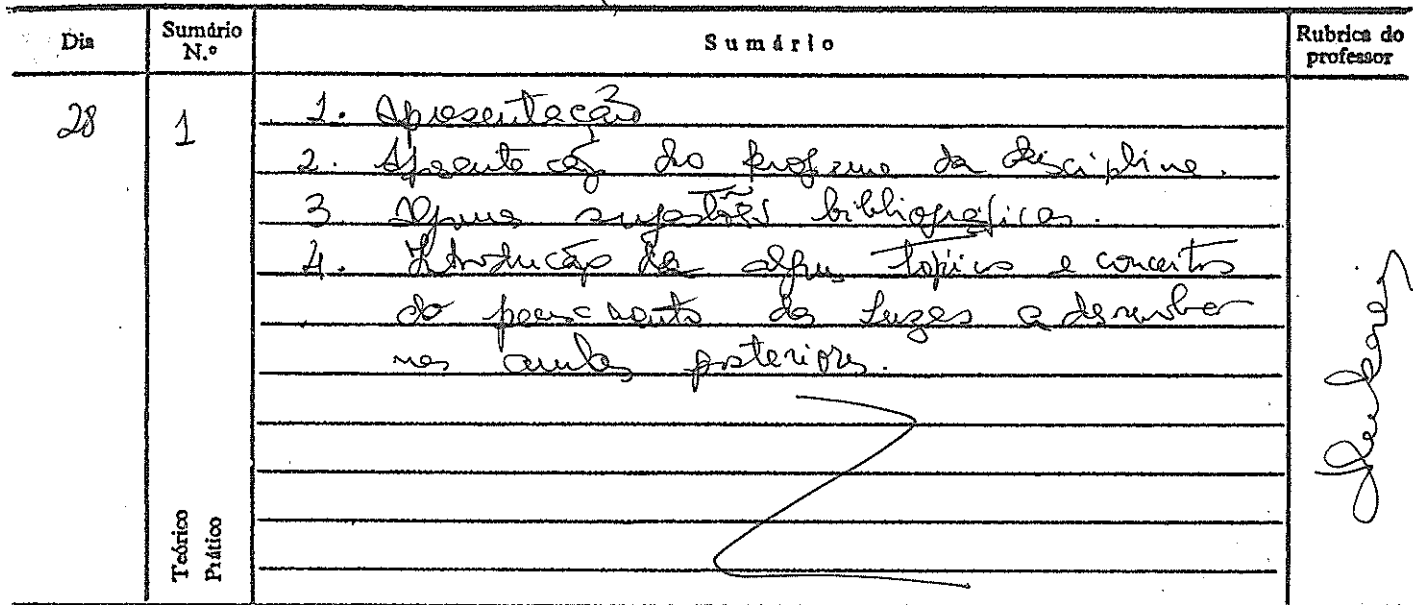 Dia
Sumário N.º
Sumário
Rubrica do professor
28
1
1. Apresentação
2. Apresentação do programa da disciplina.
3. Algumas sugestões bibliográficas.
4. Introdução de alguns tópicos e conceitos
do pensamento das Luzes a desenvolver
nas aulas posteriores.
Teórico
Prático